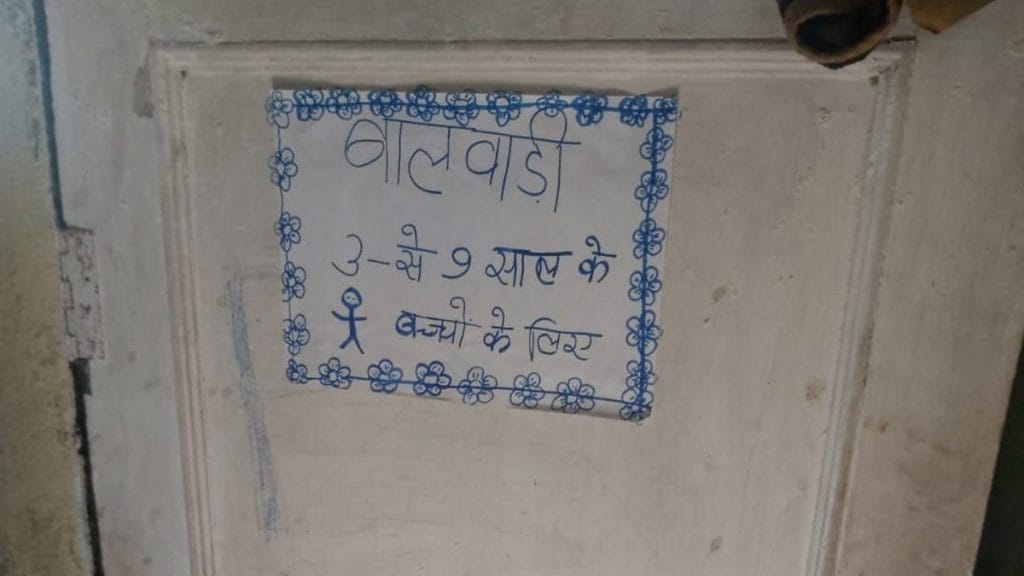 बालवाड़ी
3-से 9 साल के
बच्चों के लिए